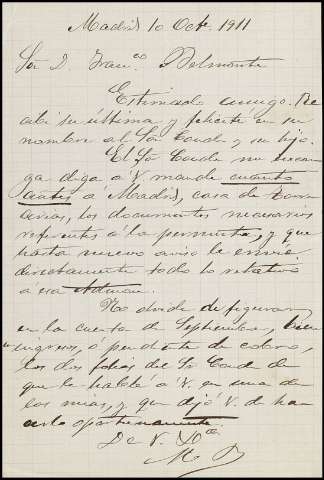 Madrid 10 Octe. 1911
Sor D. Franco Belmonte
Estimado amigo. Re
cibí su última y felicité en su
nombre al Sor Conde y su hijo.
El Sor Conde me encar
ga diga á V. mande cuanto
antes á Madrid, casa de
los documentos necesarios
referentes á la permuta, y que
hasta nuevo aviso le envíe
directamente todo lo relativo
á esa Admon.
No olvide de figurar
en la cuenta de Septiembre, bien
ingreso, ó pendiente de cobro,
los dos folios del Sr Conde de
que le hablé á V. en una de
las mías, y que dejó V. de hacerlo oportunamente
De V. afmo